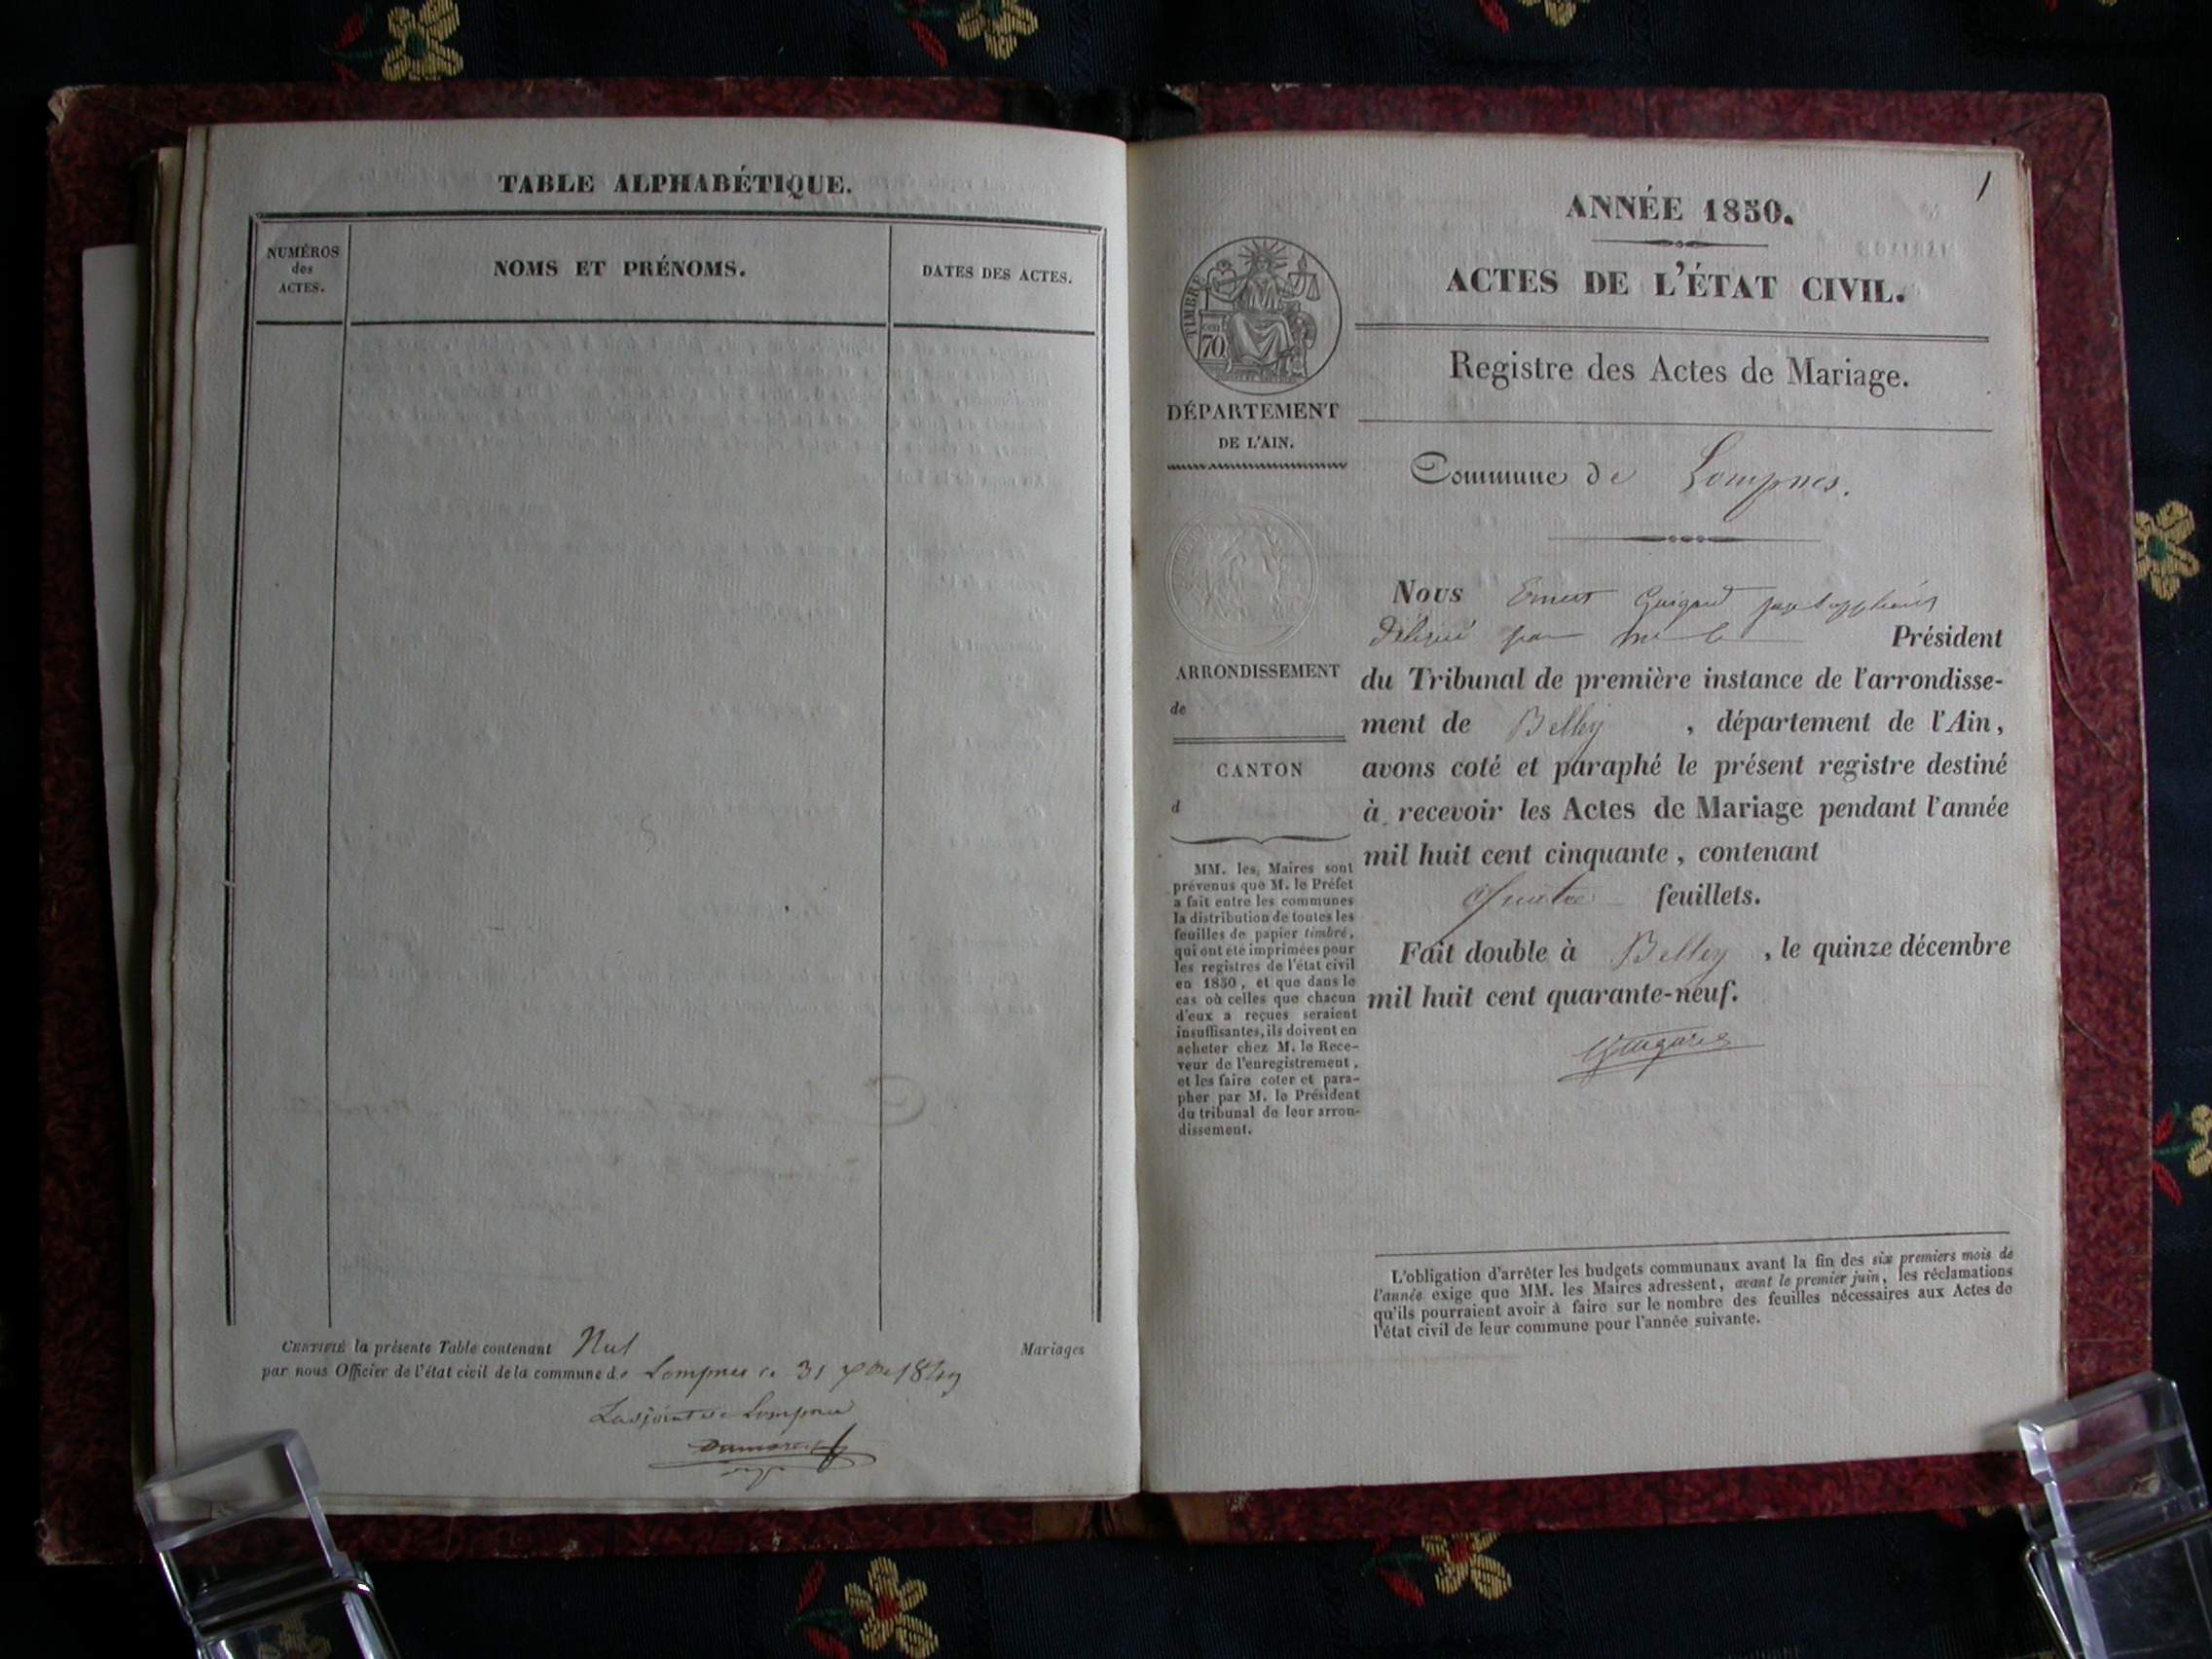 TABLE ALPHABÉTIQUE.
NUMÉROS
des
ACTES.
NOMS ET PRÉNOMS.
DATES DES ACTES.
CERTIFIÉ la présente Table contenant Nul Mariages
par nous Officier de l'état civil de la commune de Lompnes ce 31 Xbre 1849
L'adjoint de Lompnes
1
ANNÉE 1850.
ACTES DE L'ÉTAT CIVIL.
Registre des Actes de Mariage.
TIMBRE
70
DÉPARTEMENT
DE L'AIN.
Commune de Lompnes.
ARRONDISSEMENT
de
CANTON
d
MM. les Maires sont
prévenus que M. le Préfet
a fait entre les communes
la distribution de toutes les
feuilles de papier timbré,
qui ont été imprimées pour
les registres de l'état civil
en 1850, et que dans le
cas où celles que chacun
d'eux a reçues seraient
insuffisantes, ils doivent en
acheter chez M. le Rece-
veur de l'enregistrement,
et les faire coter et para-
pher par M. le Président
du tribunal de leur arron-
dissement.
Nous Ernest Guigard juge suppléant
délégué par Mr le Président
du Tribunal de première instance de l'arrondisse-
ment de Belley, département de l'Ain,
avons coté et paraphé le présent registre destiné
à recevoir les Actes de Mariage pendant l'année
mil huit cent cinquante, contenant
Quatre feuillets.
Fait double à Belley, le quinze décembre
mil huit cent quarante-neuf.
L'obligation d'arrêter les budgets communaux avant la fin des six premiers mois de
l'année exige que MM. les Maires adressent, avant le premier juin, les réclamations
qu'ils pourraient avoir à faire sur le nombre des feuilles nécessaires aux Actes de
l'état civil de leur commune pour l'année suivante.